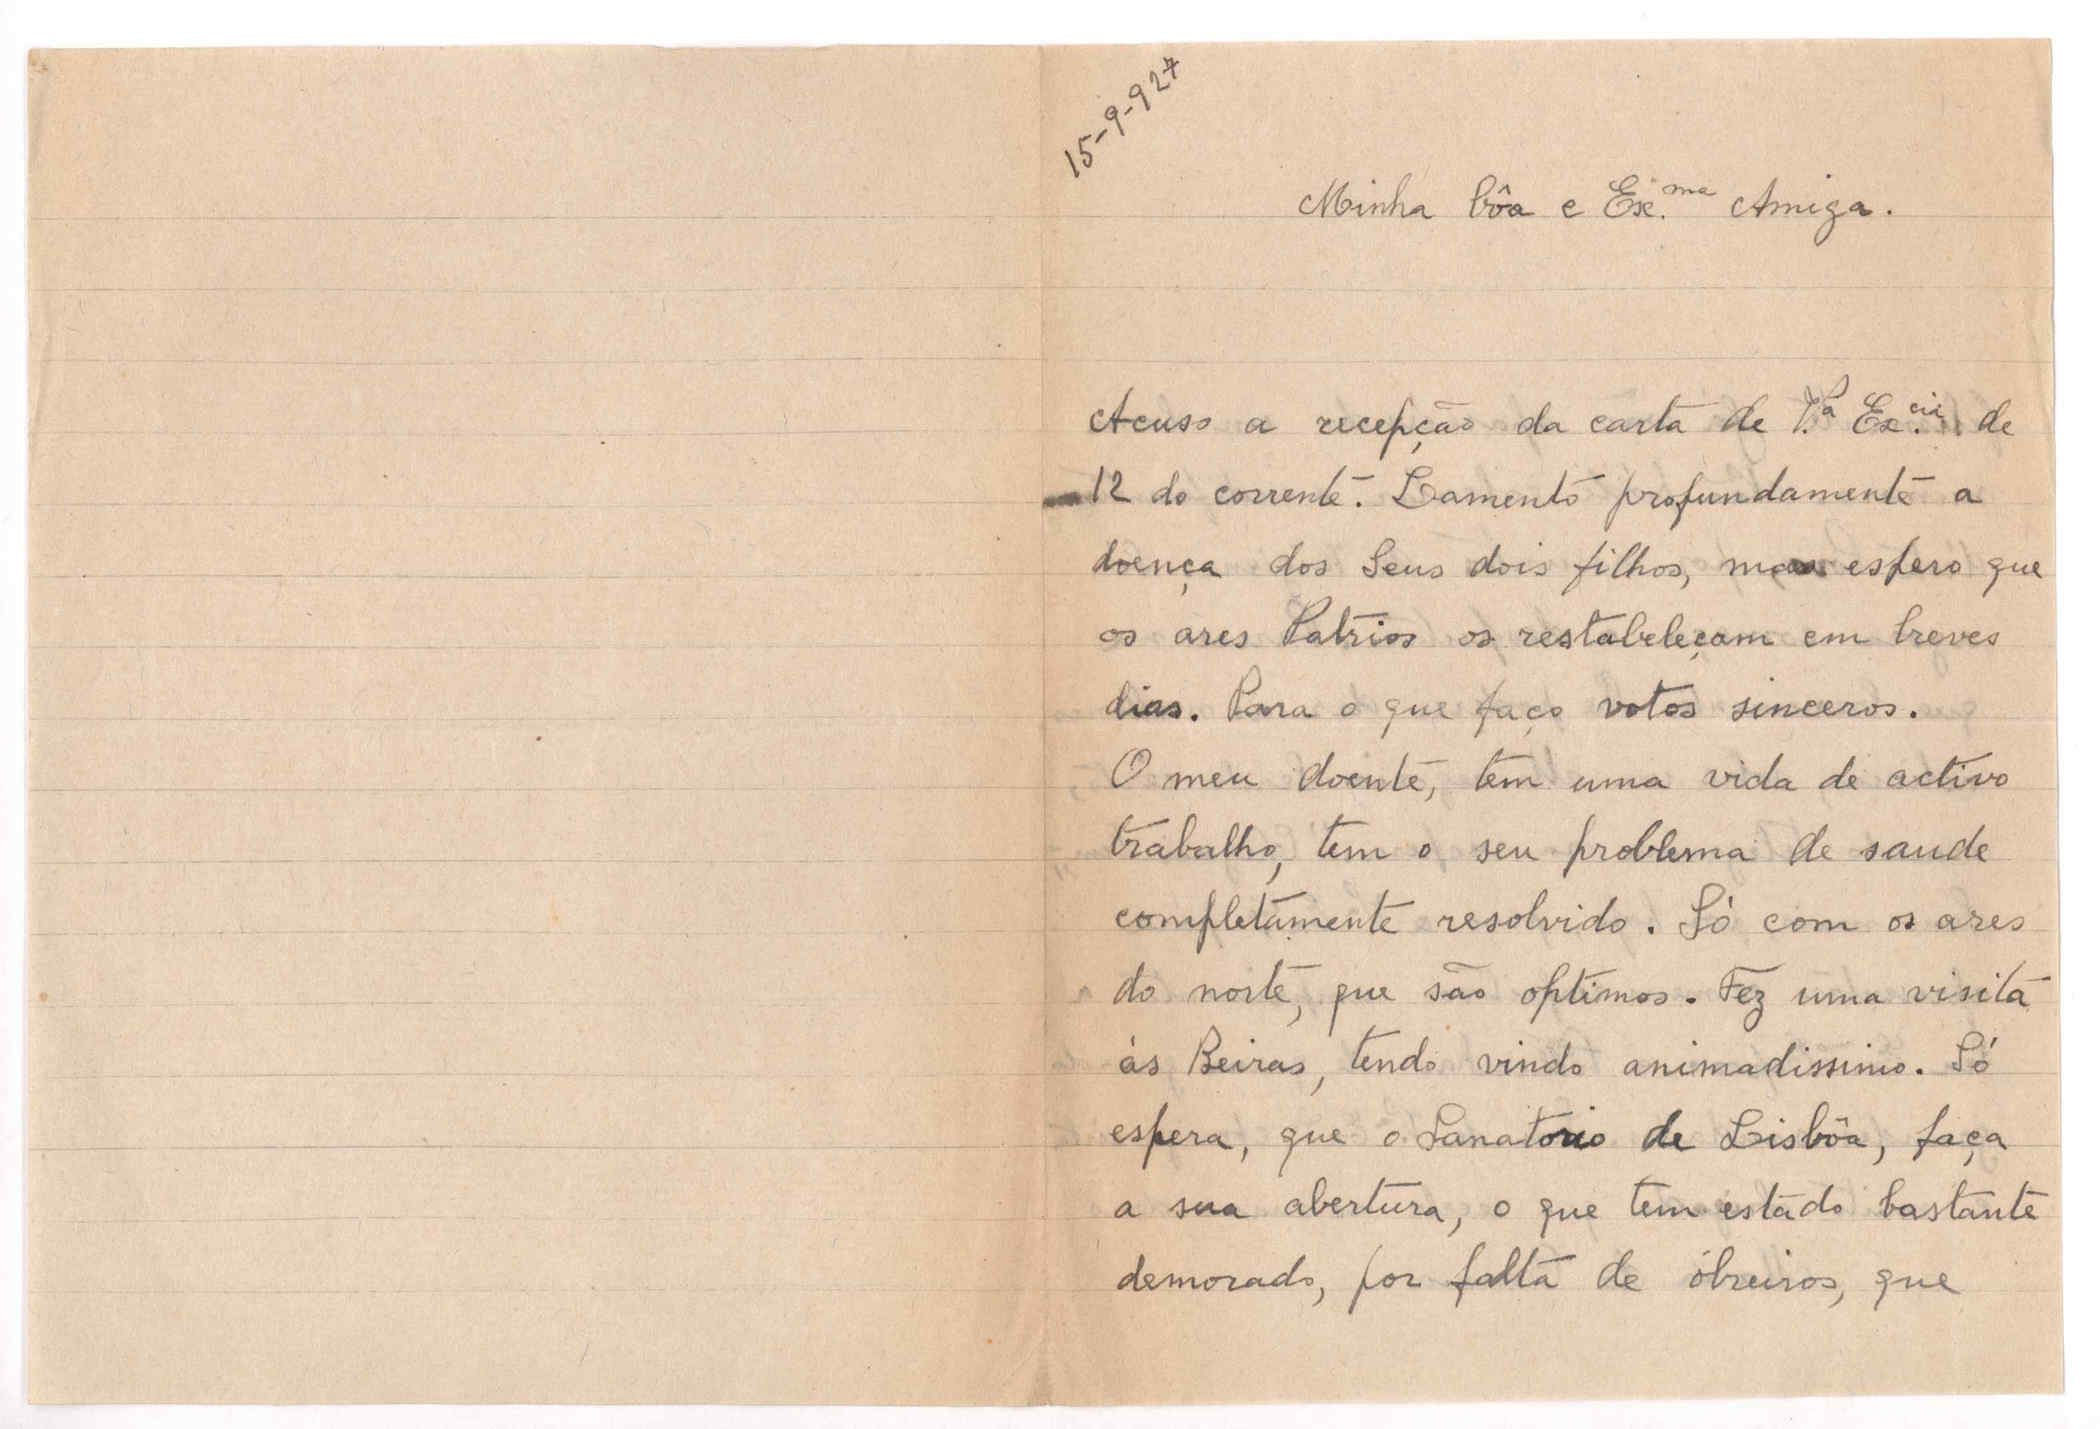 15-9-927
Minha bôa e Ex.ma Amiga.
Acuso a recepção da carta de V.a Ex.cia de
12 do corrente. Lamento profundamente a
doença dos Seus dois filhos, mas espero que
os ares Patrios os restabeleçam em breves
dias. Para o que faço votos sinceros.
O meu doente, tem uma vida de activo
trabalho, tem o seu problema de saude
completamente resolvido. Só com os ares
do norte, que são optimos. Fez uma visita
ás Beiras, tendo vindo animadissimo. Só
espera, que o Sanatorio de Lisbôa, faça
a sua abertura, o que tem estado bastante
demorado, por falta de óbreiros, que